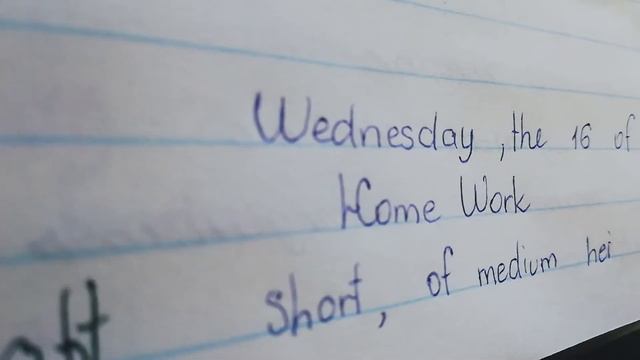 Wednesday, the 16 of
Home Work
short, of medium hei
ght